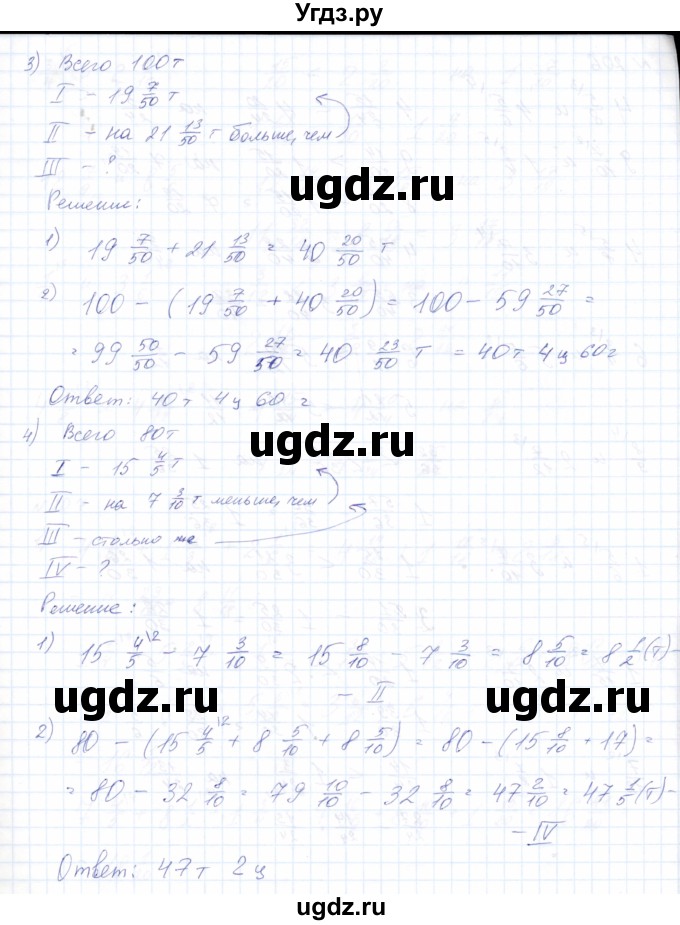 Угдз.ру
3) Всего 100т
I – 19 7/50 т
II – на 21 13/50 т больше, чем
III – ?
ugdz.ru
Решение:
1) 19 7/50 + 21 13/50 = 40 20/50 т
2) 100 – (19 7/50 + 40 20/50) = 100 – 59 27/50 =
= 99 50/50 – 59 27/50 = 40 23/50 т = 40т 4ц 60г
Ответ: 40т 4ц 60 г
4) Всего 80т
ugdz.ru
I – 15 4/5 т
II – на 7 3/10 т меньше, чем
III – столько же
IV – ?
Решение:
1) 15 4/5 \2 – 7 3/10 = 15 8/10 – 7 3/10 = 8 5/10 = 8 1/2 (т) –
– II
ugdz.ru ugdz.ru
2) 80 – (15 4/5 \2 + 8 5/10 + 8 5/10) = 80 – (15 8/10 + 17) =
= 80 – 32 8/10 = 79 10/10 – 32 8/10 = 47 2/10 = 47 1/5 (т) –
– IV
Ответ: 47т 2ц
ugdz.ru